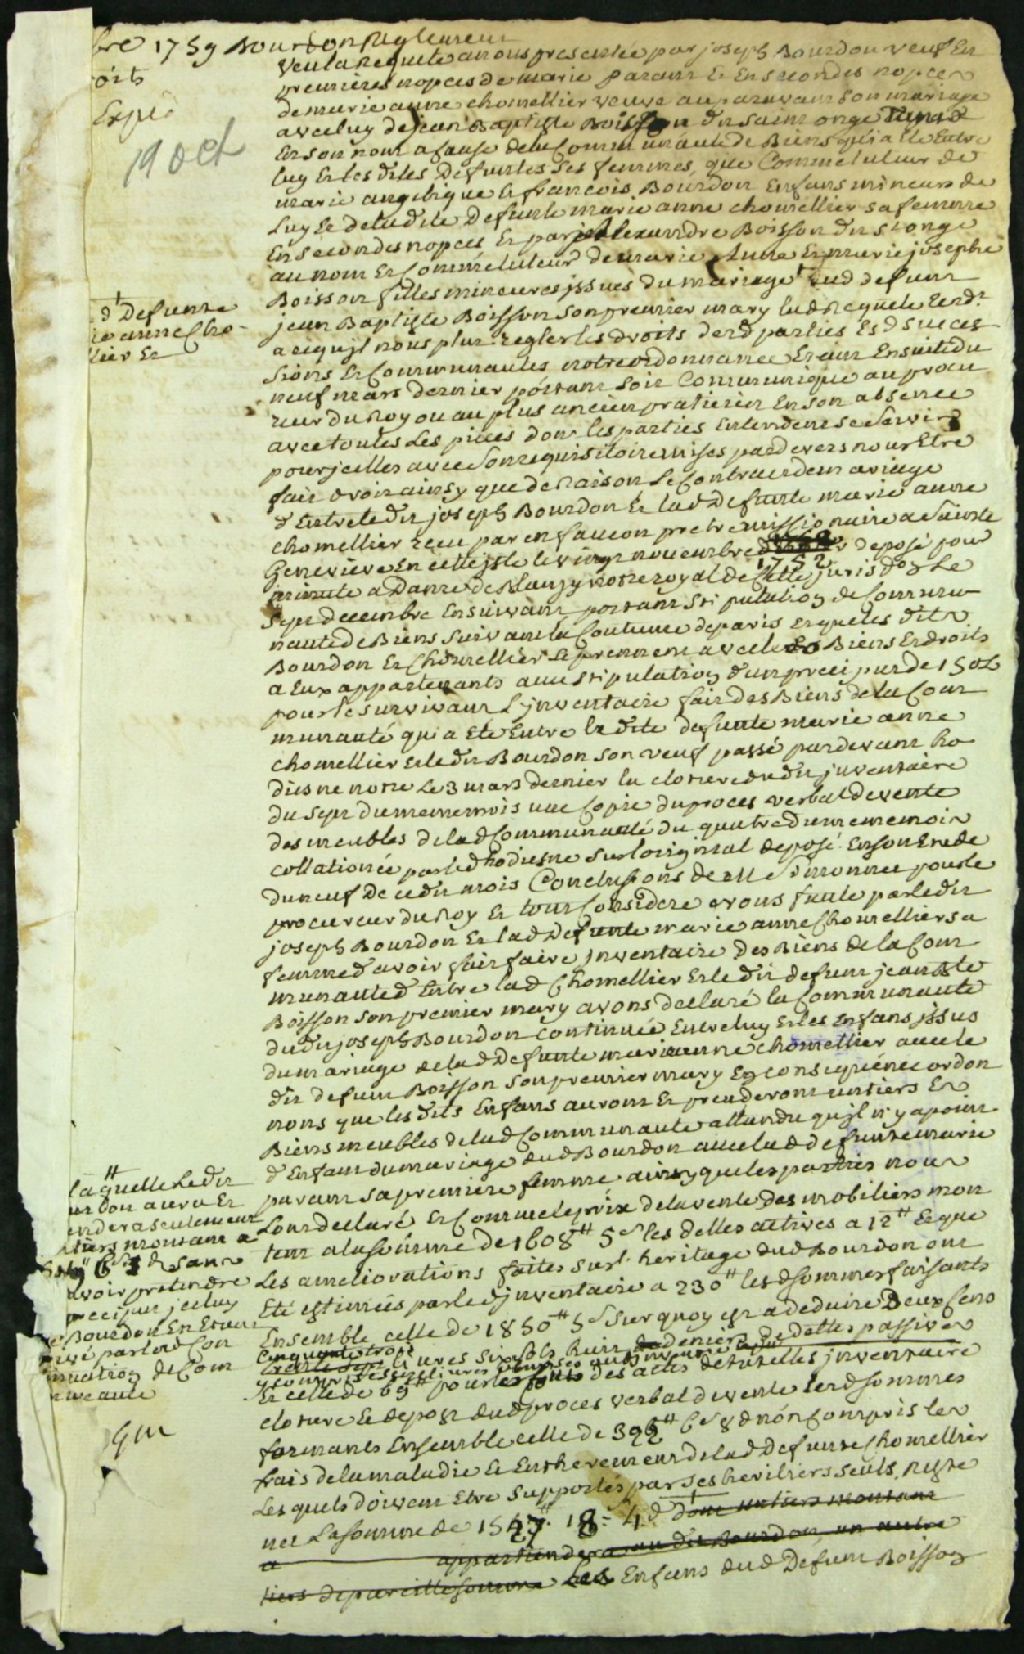 bre 1759 Bourdon Reglement
oits
Expié
19 oct
Veu la Requete a nous presentée par joseph Bourdon veuf En
premieres nopces de marie parant & En secondes nopces
de marie anne chomellier veuve auparavant son mariage
avec luy de jean Baptiste Boisson dit saint onge tant
En son nom a cause de la Communauté de Biens qui a Eté Entre
luy Et les dites defuntes ses femmes, que Comme tuteur de
marie angelique & francois Bourdon Enfans mineurs de
luy Et de ladite defunte marie anne chomellier sa femme
En secondes nopces Et par alexandre Boisson dit st onge
au nom Et Comme tuteur de marie anne Et marie josephe
Boisson filles mineures issues du mariage de lad defunte
d defunte
ie anne Cho-
lier Et
jean Baptiste Boisson son premier mary lad Requete tend.t
a ce qu'jl nous plut regler les droits desd parties Esd succes
sions Et Communautés notre ordonnance Etant Ensuite du
neuf mars dernier portant soit Communiqué au procu
reur du Roy ou au plus ancien praticien En son absence
avec toutes les pieces dont les parties Entendent se servir
pour jcelles avec son requisitoire mises pardevers nous Etre
fait droit ainsy que de Raison Le Contract de mariage
d'Entre ledit joseph Bourdon Et lad defunte marie anne
chomellier recu par en faucon pretre missionaire a Sainte
Genevieve En cette jsle le vingt novembre 1752 deposé pour
minute a Danré de Blanzy notre royal de Cette jurisd.on Le
sept decembre Ensuivant portant stipulation de Commu
nauté de Biens suivant la Coutume de paris Et que les dits
Bourdon Et Chomellier se prennent avec les Biens Et droits
a Eux appartenants avec stipulation d'un preciput de 150#
pour le survivant L'jnventaire fait des Biens de la Com
munauté qui a Eté Entre la dite defunte marie anne
chomellier Et le dit Bourdon son veuf passé pardevant ho
diesne notre Le 3 mars dernier la cloture dudit jnventaire
du sept du meme mois une Copie du proces verbal de vente
des meubles de lad Communauté du quatre du meme mois
collationée par led hodiesne sur l'original deposé En son Etude
du neuf de cedit mois Conclusions de Me Simonnet pour le
procureur du Roy Et tout Consideré Nous faute par ledit
joseph Bourdon Et lad defunte marie anne Chomellier sa
femme d'avoir fait faire jnventaire des Biens de la Com
munauté d'Entre lad Chomellier Et ledit defunt jean Bte
Boisson son premier mary avons declaré la Communauté
dudit joseph Bourdon continuée Entre luy Et les Enfans jssus
du mariage de lad defunte marie anne chomellier avec le
dit defunt Boisson son premier mary En consequence ordon
nons que les dits Enfans auront Et prendront un tiers Es
Biens meubles de lad Communauté attendu qu'jl n'y a point
d'Enfans du mariage dud Bourdon avec lad defunte marie
parant sa premiere femme ainsy que les parties nous
L'ont declaré Et Comme le prix de la vente des mobiliers mon
tent a la somme de 1608# 5s les dettes actives a 12# Et que
Les ameliorations faites sur l'heritage dud Bourdon ont
Eté estimées par led jnventaire a 230# les d sommes faisants
Ensemble celle de 1850# 5s sur quoy Et a deduire Deux Cens
cinquante trois livres six sols huit deniers de dettes passives
Et celle de 69# pour les frais des actes de tutelles jnventaire
cloture Et depost dud proces verbal de vente lesd sommes
formants Ensemble celle de 322# 6s 8d non compris les
frais de la maladie Et Enterrement de lad defunte Chomellier
Les quels doivent Etre supportés par ses heritiers seuls, Reste
net La somme de 1527# 18s 4d dont un tiers montant
a appartiendra au dit Bourdon, un autre
tiers de pareille somme Les Enfans dud Defunt Boisson
laquelle Ledit
urdon aura Et
endera seulement
tiers montant a
6s 1d sans
avoir pretendre
preciput jceluy
Bourdon En Etant
privé par lad Con
inuation de Com
unauté